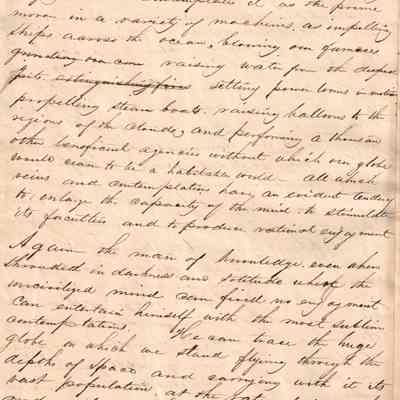 contemplates it, as the prime
mover in a variety of machines, as impelling
ships across the ocean, blowing our furnaces
grinding our corn raising water from the deepest
pits, extinguishing fires setting power looms in motion
propelling steam boats, raising balloons to the
regions of the clouds, and performing a thousand
other beneficial agencies without which our globe
would cease to be a habitable world – All which
veins and contemplations have an evident tendency
to enlarge the capacity of the mind – to stimulate
its faculties and to produce rational enjoyment
Again the man of knowledge even when
shrouded in darkness and solitude where the
uncivilized mind can find no enjoyment
can entertain himself with the most sublime
contemplations. He can trace the huge
globe on which we stand flying through the
depths of space and carrying with it its
vast population, at the rate